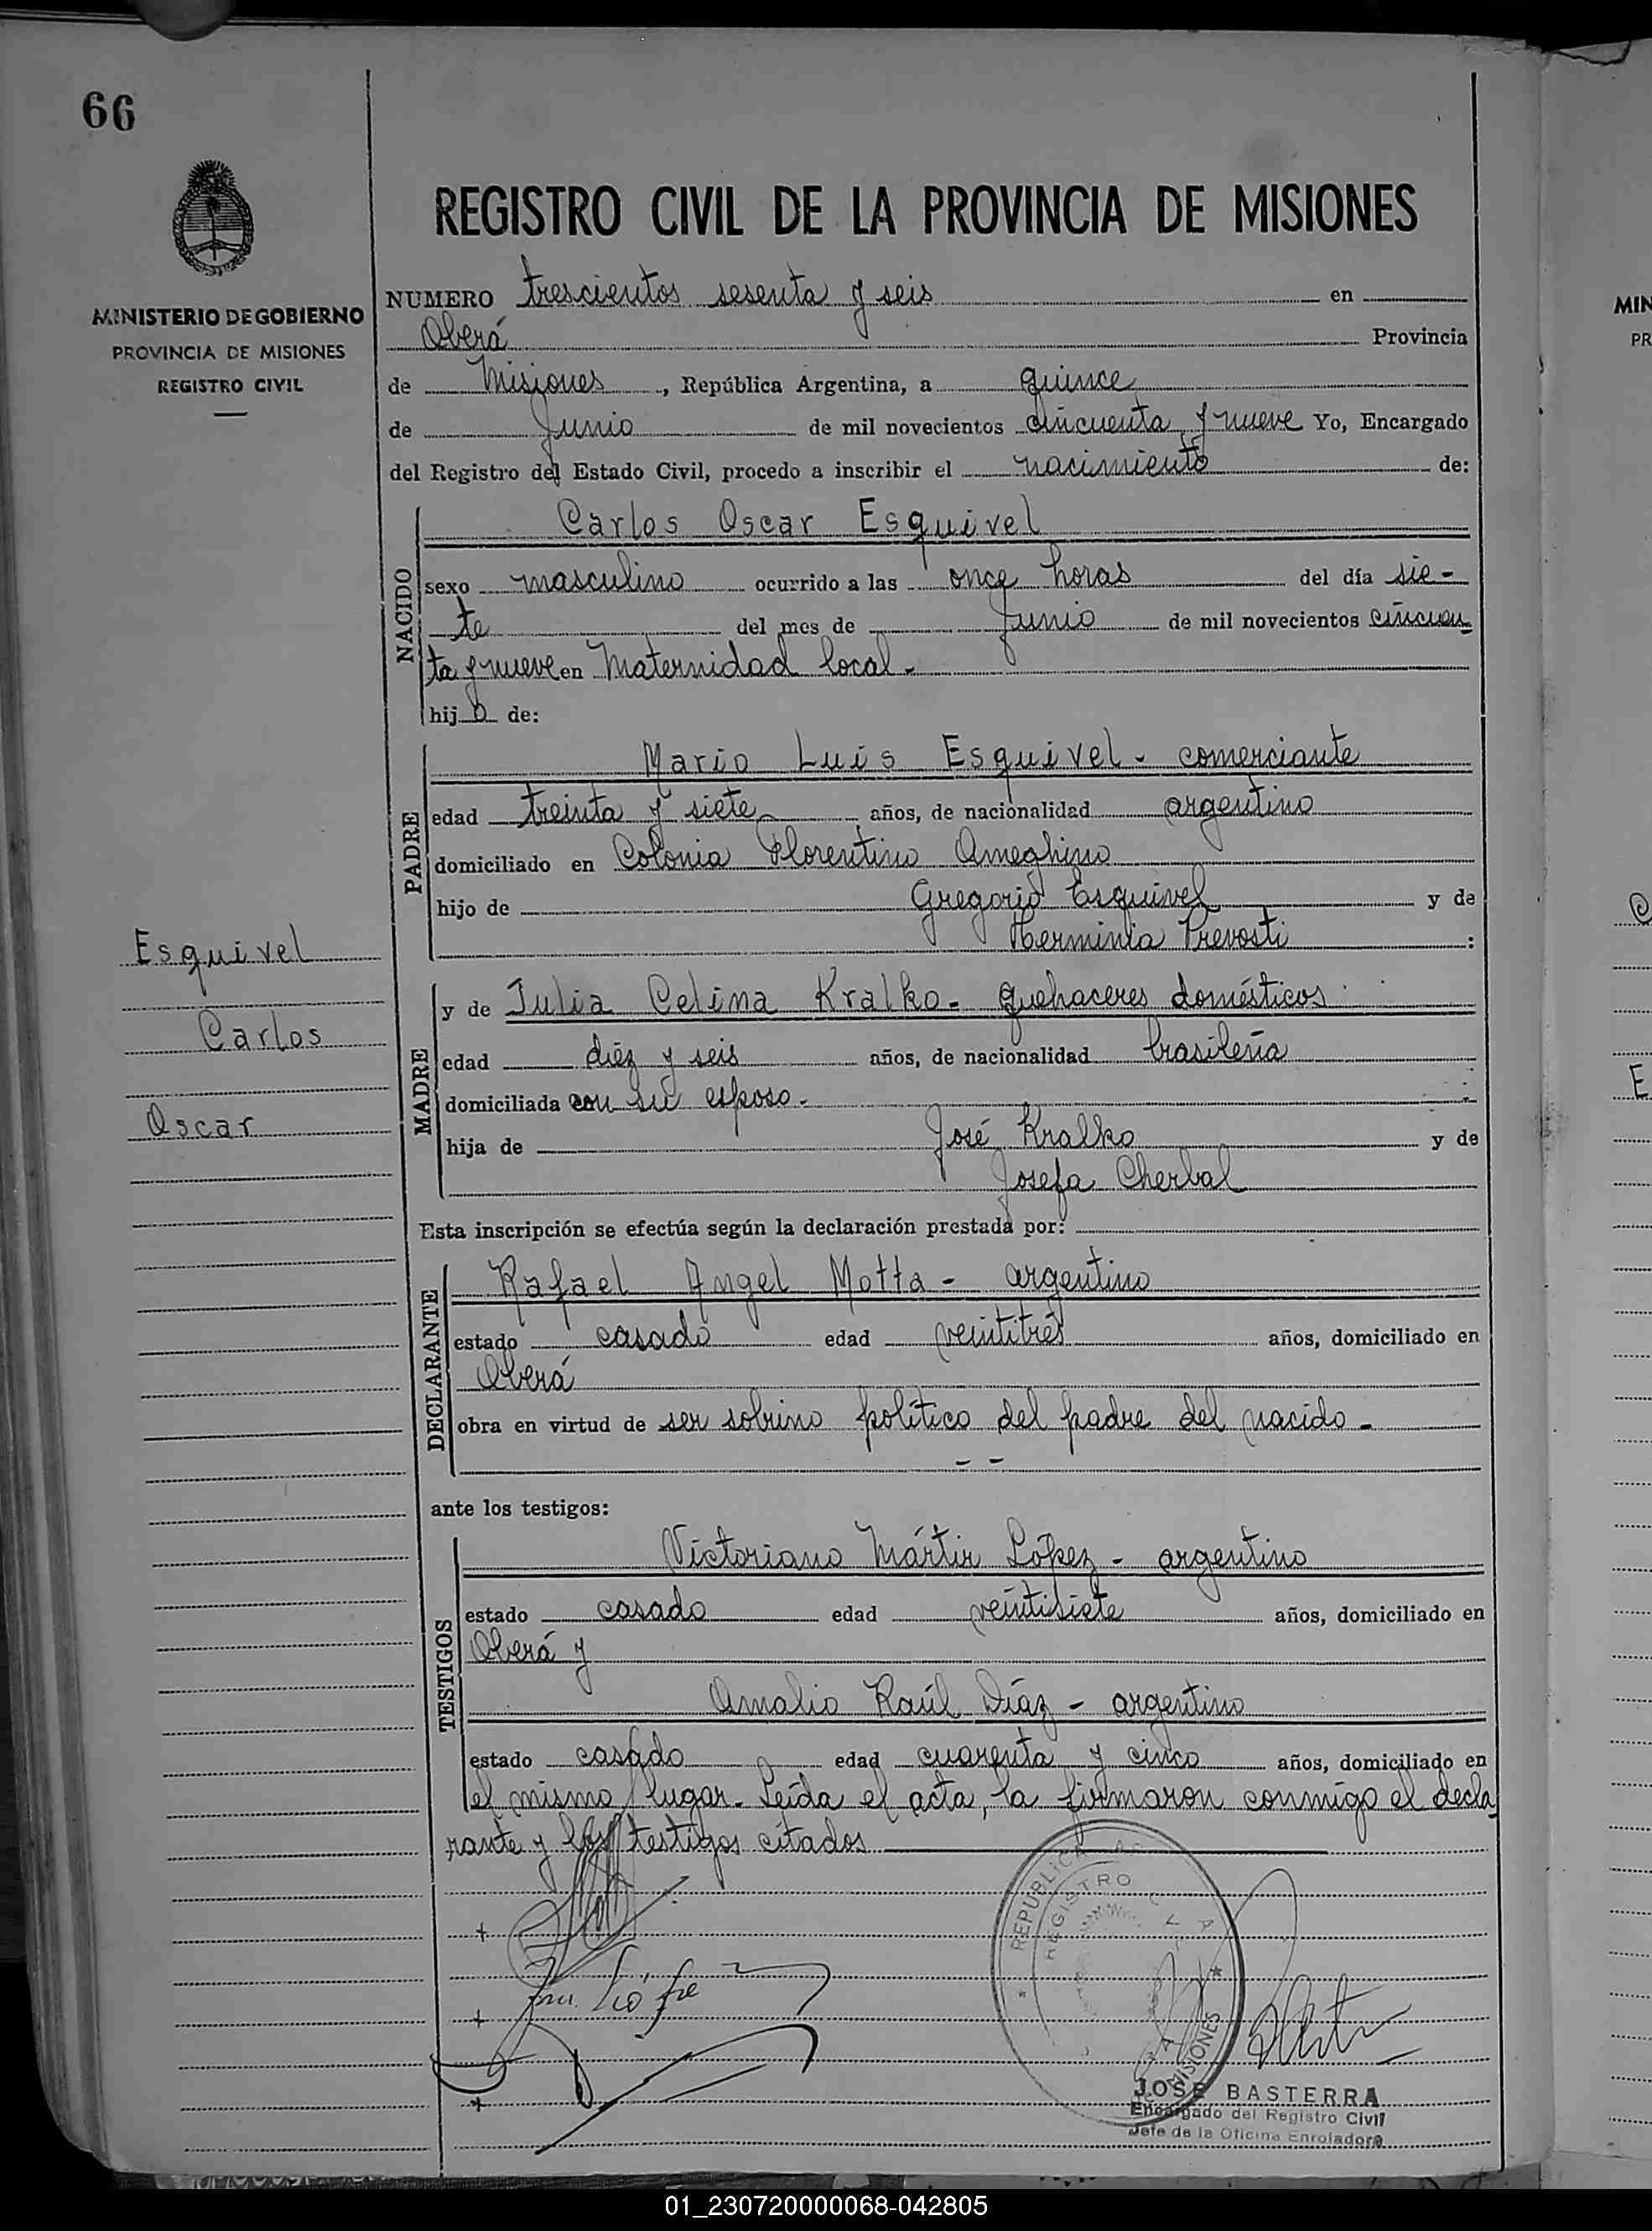 66
REGISTRO CIVIL DE LA PROVINCIA DE MISIONES
MINISTERIO DE GOBIERNO
PROVINCIA DE MISIONES
REGISTRO CIVIL
NUMERO trescientos sesenta y seis en
Oberá Provincia
de Misiones, República Argentina, a quince
de Junio de mil novecientos cincuenta y nueve Yo, Encargado
del Registro del Estado Civil, procedo a inscribir el nacimiento de:
NACIDO
Carlos Oscar Esquivel
sexo masculino ocurrido a las once horas del día sie-
te del mes de Junio de mil novecientos cincuen
ta y nueve en Maternidad local.
hijo de:
PADRE
Mario Luis Esquivel - comerciante
edad treinta y siete años, de nacionalidad argentino
domiciliado en Colonia Florentino Ameghino
hijo de Gregorio Esquivel y de
Herminia Prevosti :
Esquivel
Carlos
Oscar
MADRE
y de Julia Celina Kralko - quehaceres domésticos
edad diez y seis años, de nacionalidad brasileña
domiciliada con su esposo.
hija de José Kralko y de
Josefa Cherbal
Esta inscripción se efectúa según la declaración prestada por:
DECLARANTE
Rafael Angel Motta - argentino
estado casado edad veintitrés años, domiciliado en
Oberá
obra en virtud de ser sobrino político del padre del nacido -
- -
ante los testigos:
TESTIGOS
Victoriano Mártir López - argentino
estado casado edad veintisiete años, domiciliado en
Oberá y
Amalio Raúl Díaz - argentino
estado casado edad cuarenta y cinco años, domiciliado en
el mismo lugar. Leída el acta, la firmaron conmigo el decla
rante y los testigos citados
REGISTRO
MISIONES
JOSE BASTERRA
Encargado del Registro Civil
Jefe de la Oficina Enroladora
MIN
PR
E
01_230720000068-042805